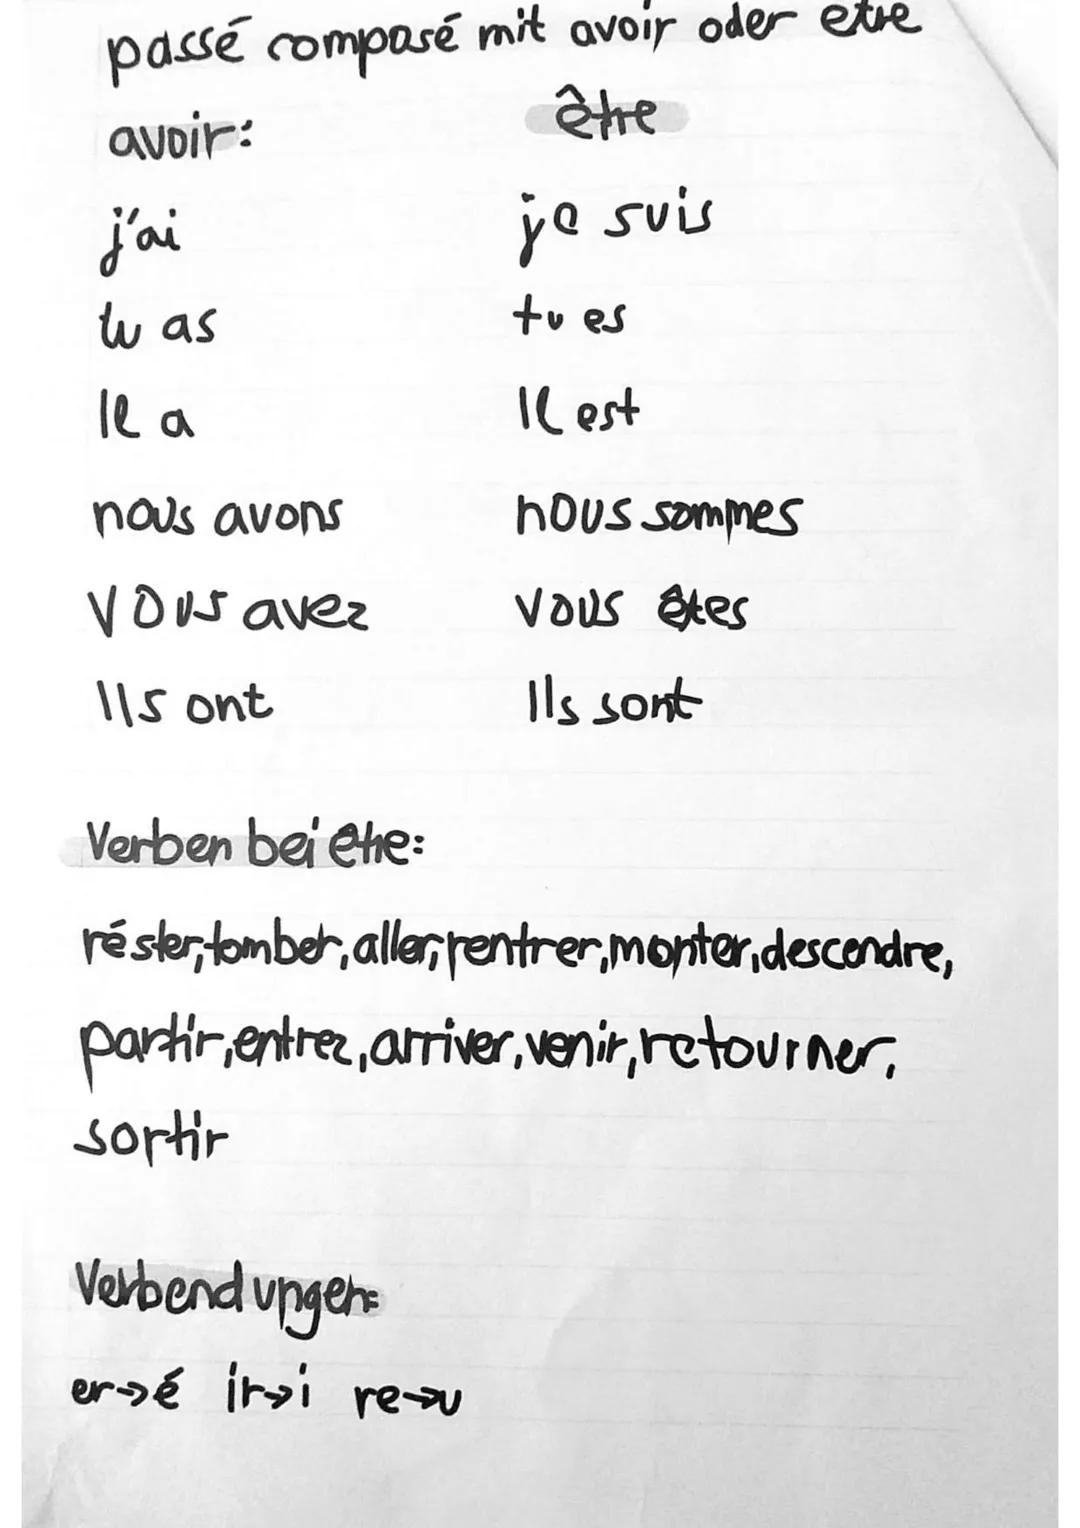 passé composé mit avoir oder etre
avoir: être
j'ai je suis
tu as tu es
Il a Il est
nous avons nous sommes
vous avez vous êtes
Ils ont Ils sont
Verben bei être:
réster, tomber, aller, rentrer, monter, descendre,
partir, entrez, arriver, venir, retourner,
sortir
Verbendungen:
er→é ir→i re→u